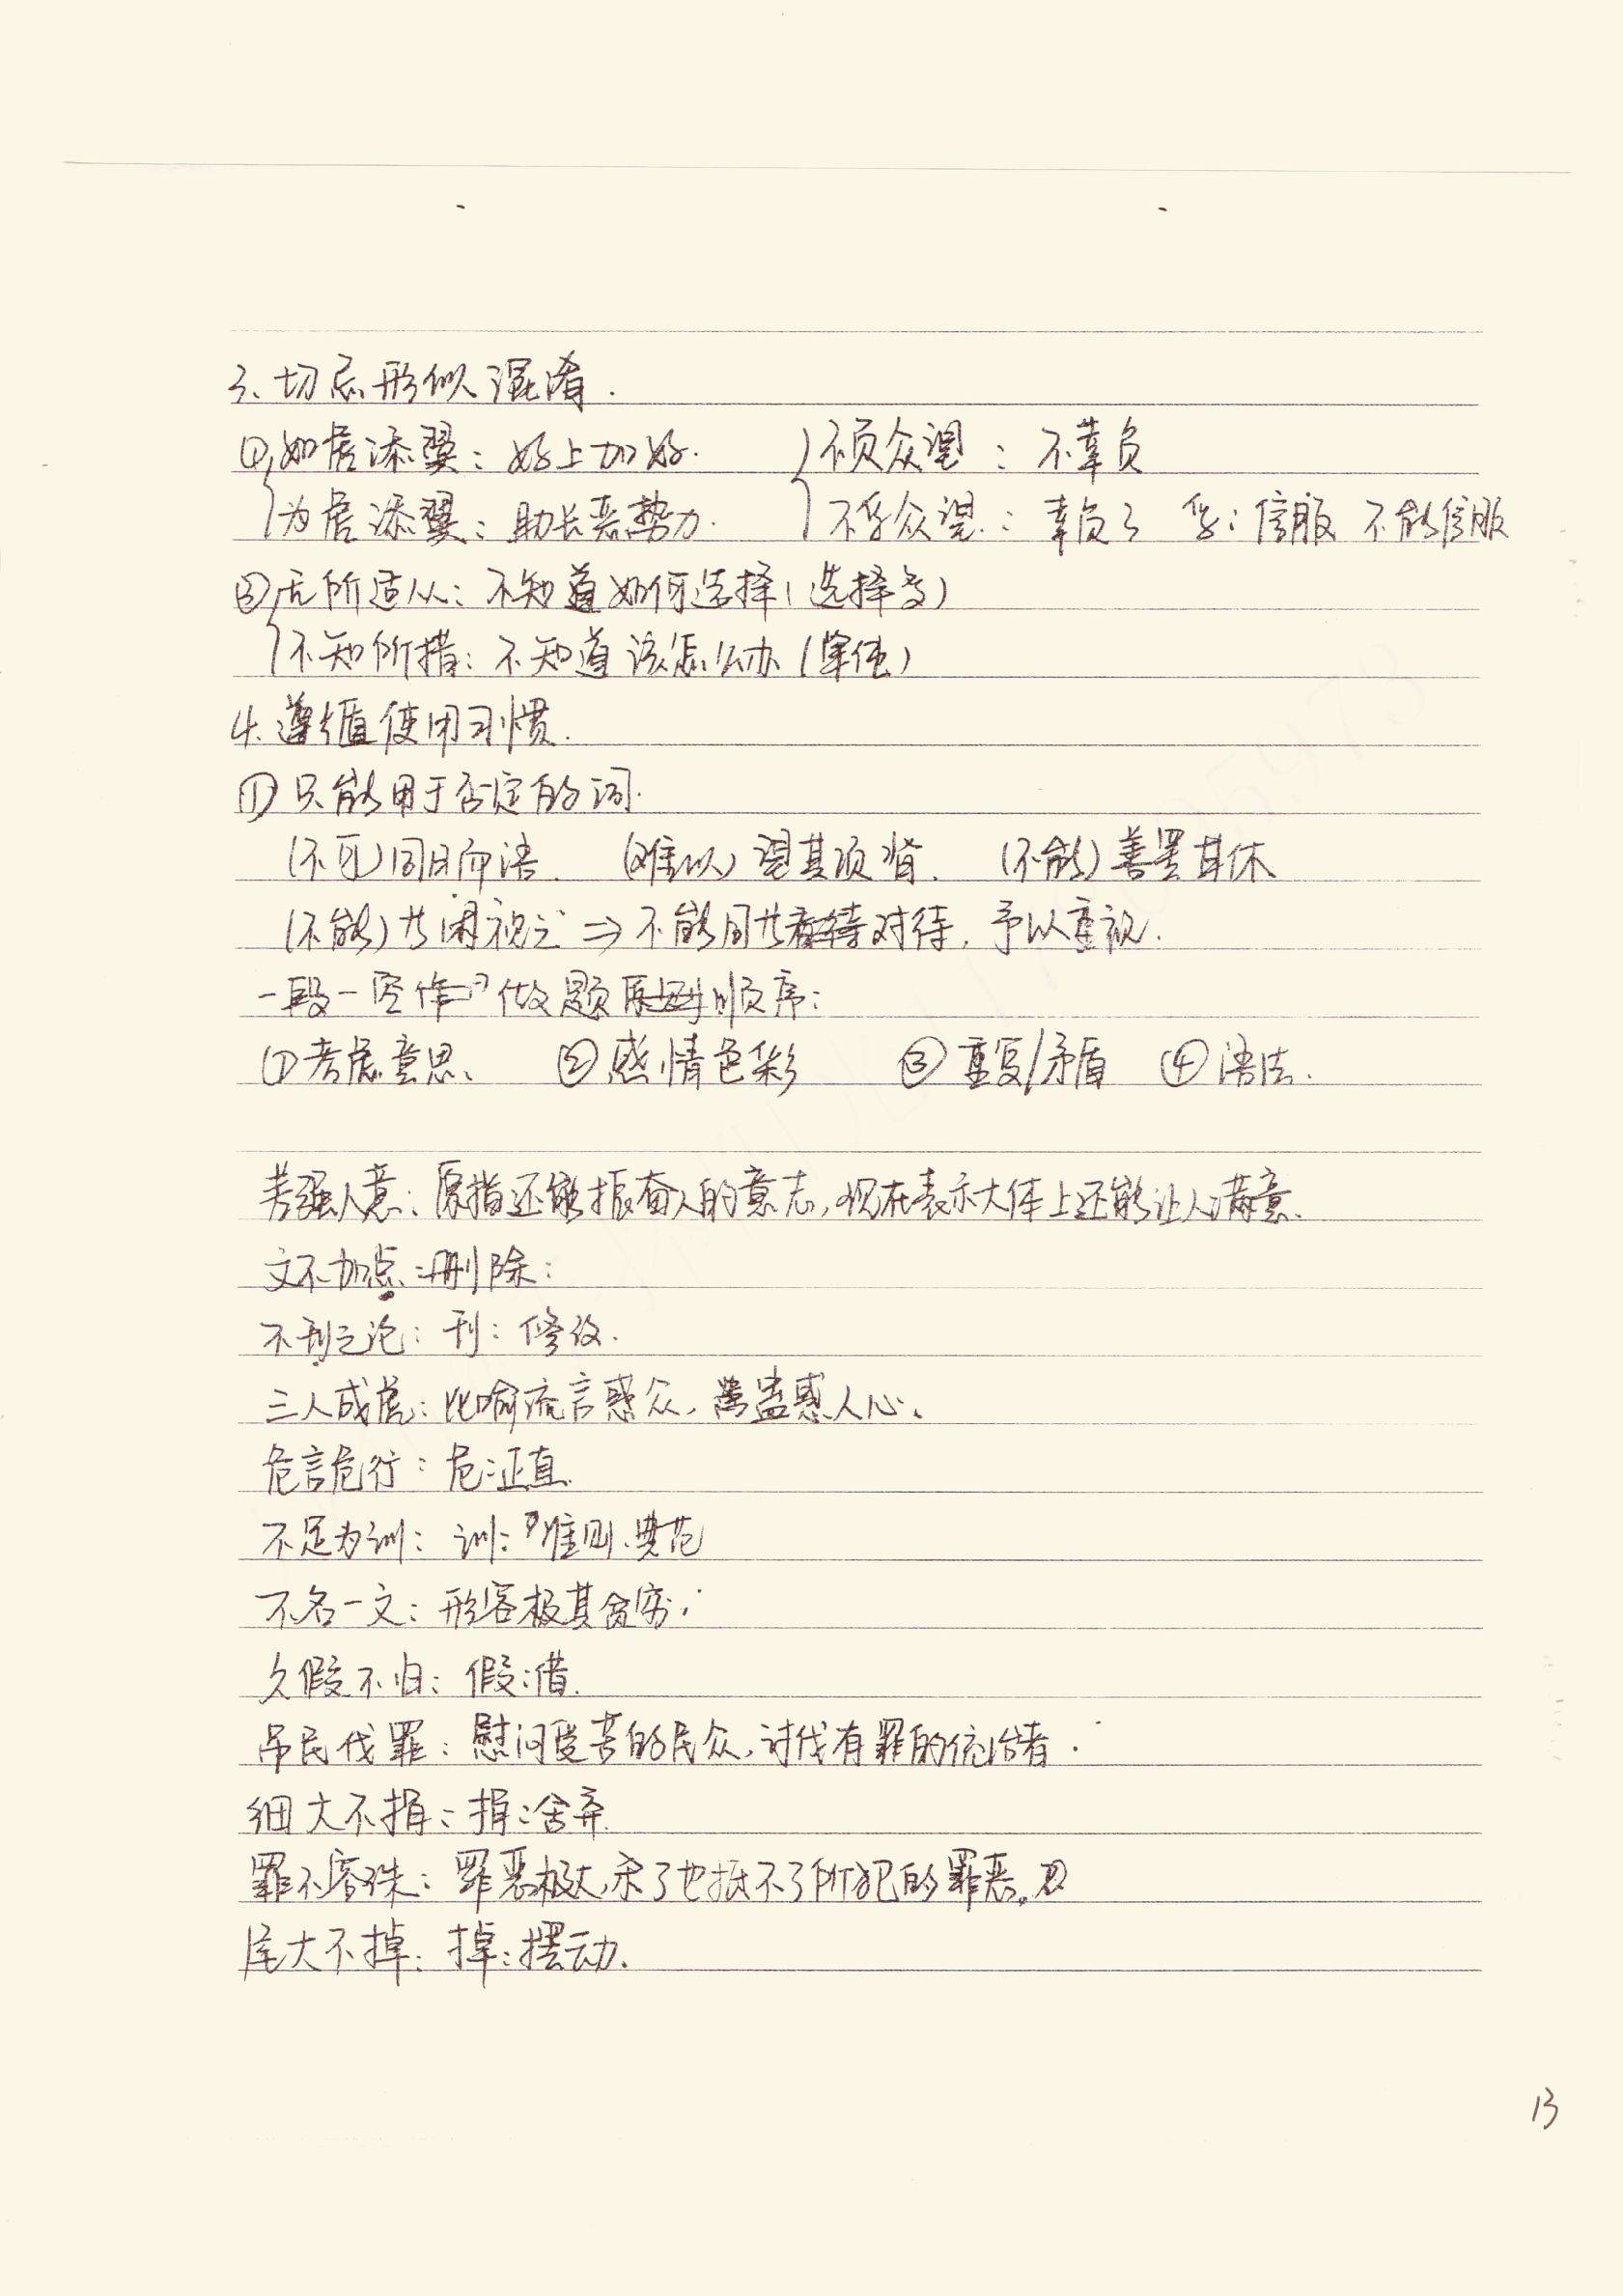 3、切忌形似混淆.
①如虎添翼：好上加好. 不负众望：不辜负
为虎添翼：助长恶势力. 不孚众望：辜负了 孚：信服 不能信服
②无所适从：不知道如何选择(选择多)
不知所措：不知道该怎么办(单纯)
4.遵循使用习惯.
①只能用于否定的词.
(不可)同日而语 (难以)望其项背. (不能)善罢甘休
(不能)等闲视之⇒不能同等看待对待，予以重视.
一段一空 做题顺序：
①考虑意思、 ②感情色彩 ③重复/矛盾 ④语法.
差强人意：原指还能振奋人的意志，现在表示大体上还能让人满意.
文不加点：删除：
不刊之论：刊：修改.
三人成虎：比喻流言惑众，蛊惑人心.
危言危行：危：正直.
不足为训：训：准则、典范
不名一文：形容极其贫穷；
久假不归：假：借.
吊民伐罪：慰问受苦的民众，讨伐有罪的统治者.
细大不捐：捐：舍弃.
罪不容诛：罪恶极大，杀了也抵不了所犯的罪恶。
尾大不掉：掉：摆动.
13